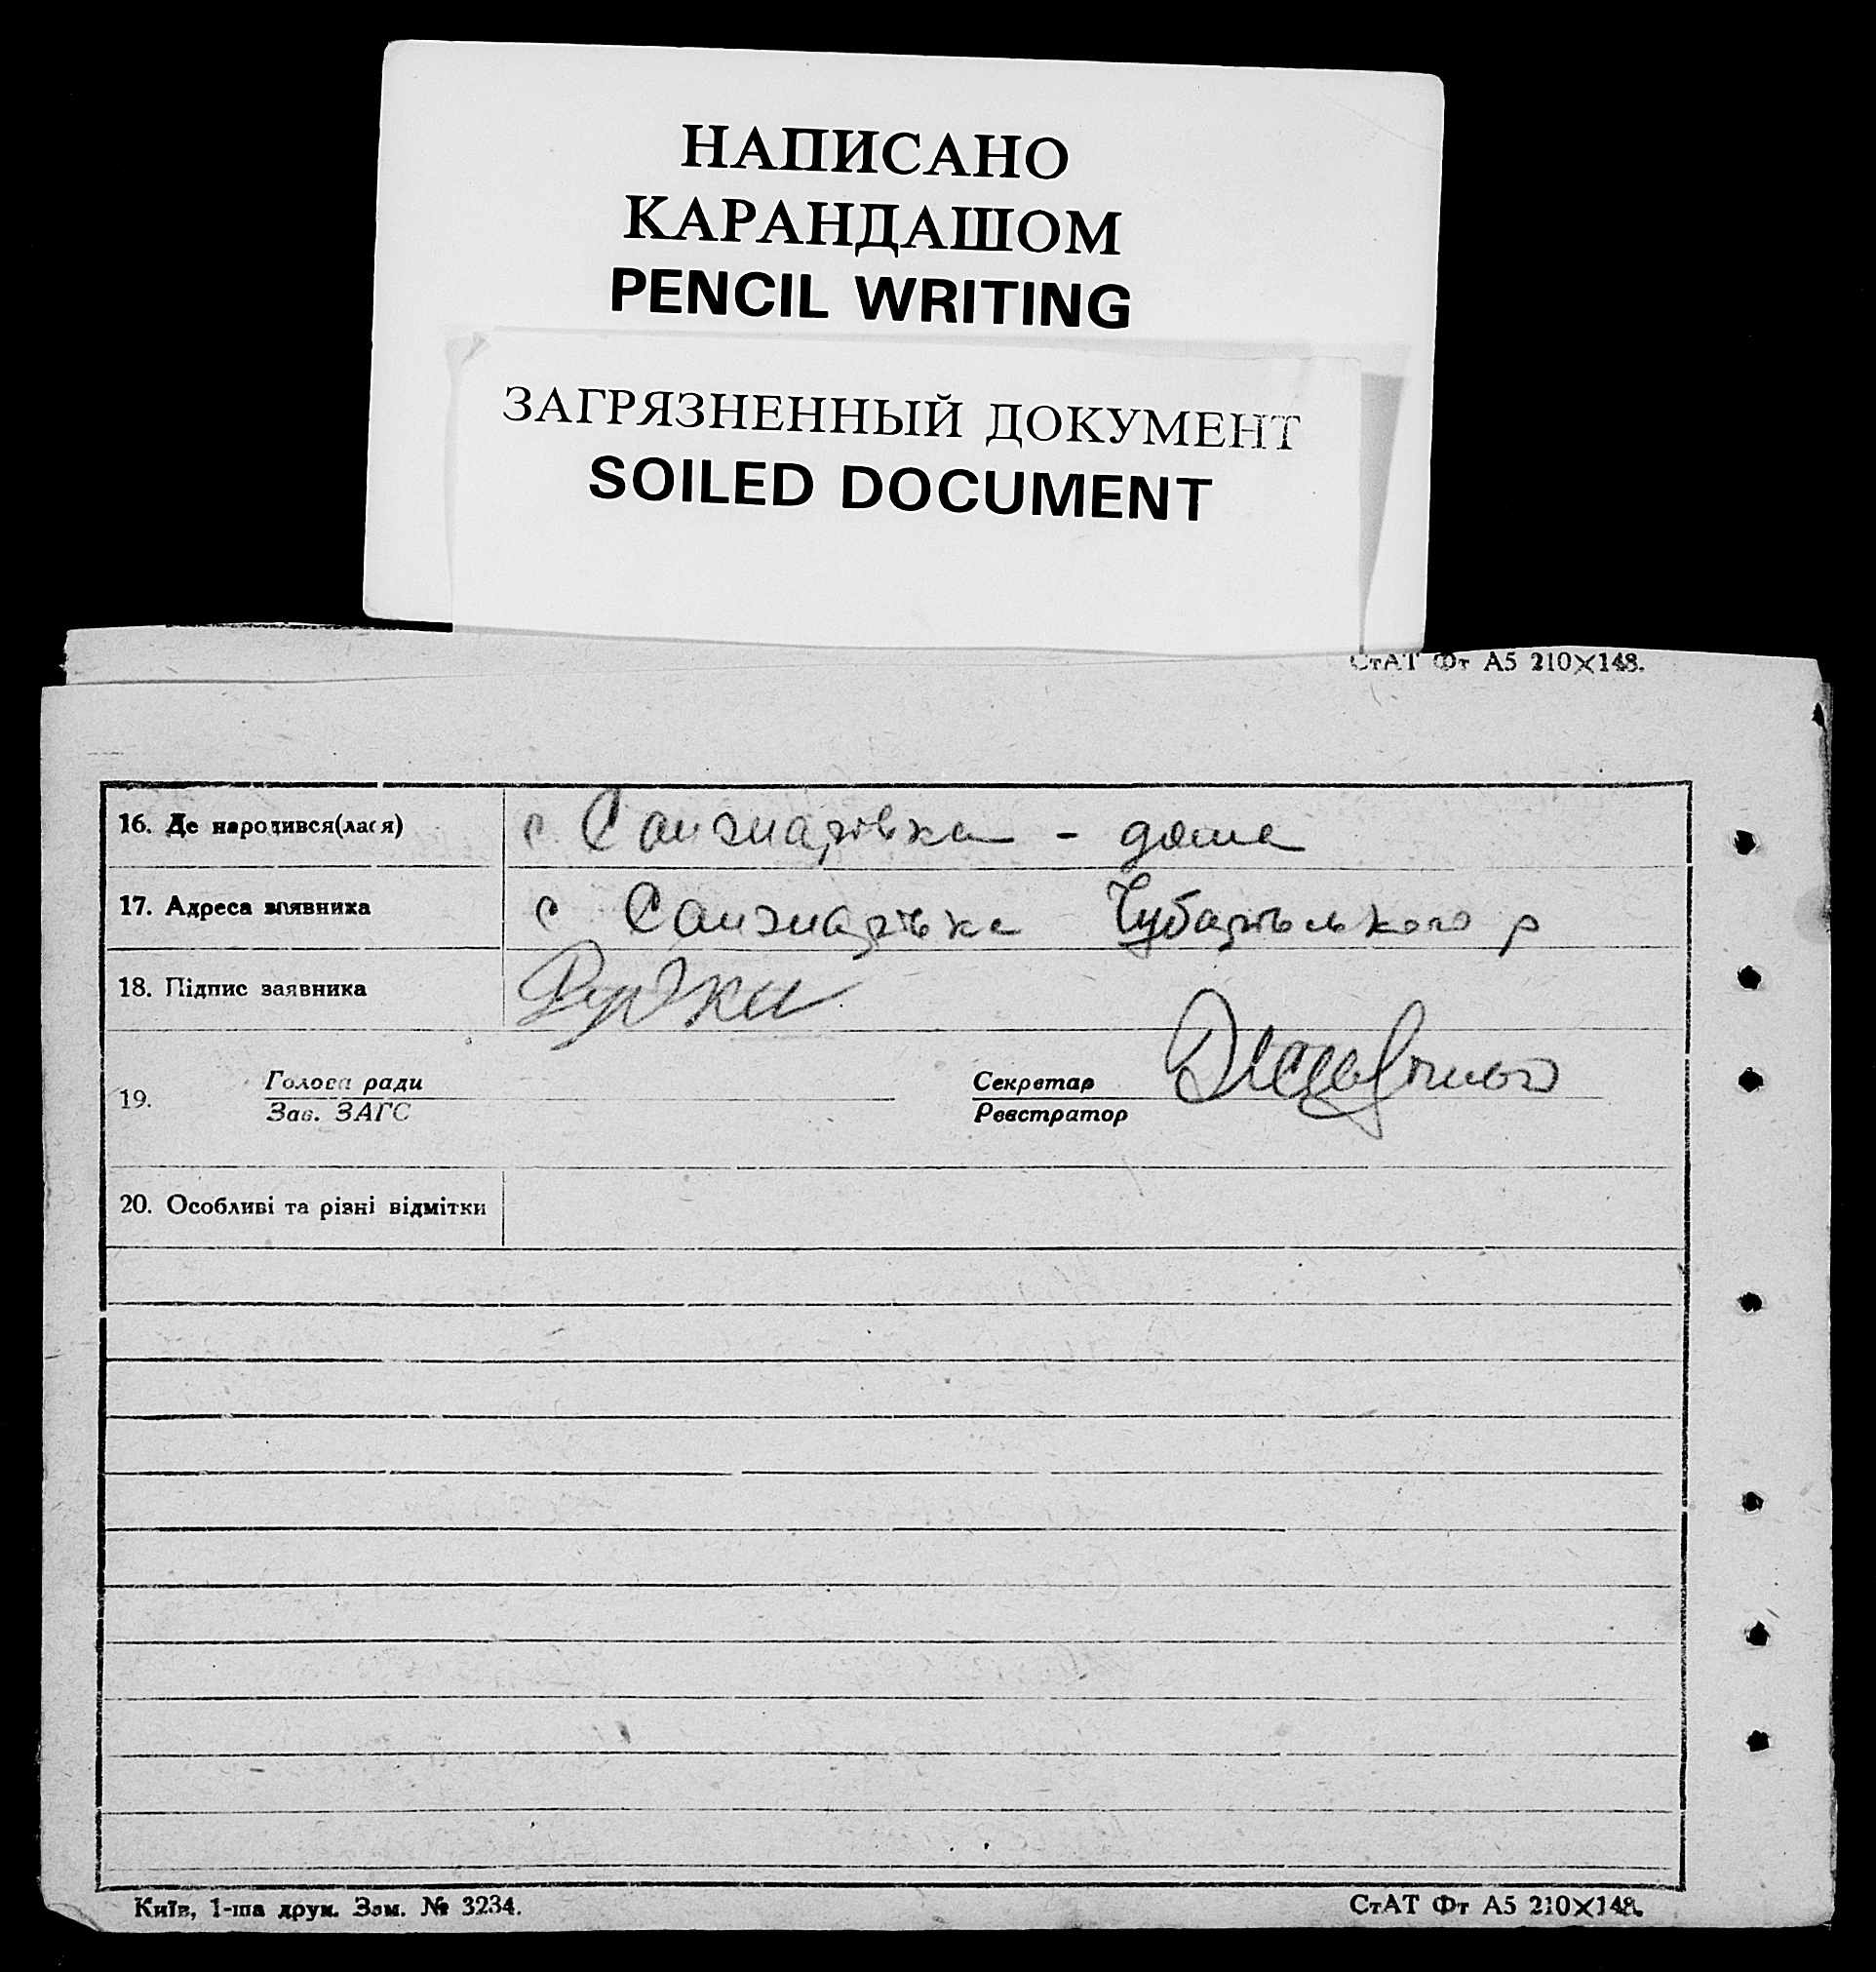 НАПИСАНО
КАРАНДАШОМ
PENCIL WRITING
ЗАГРЯЗНЕННЫЙ ДОКУМЕНТ
SOILED DOCUMENT
СтАТ Фт А5 210×148.
16. Де народився(лася) с. Санжарівка - дома
17. Адреса заявника с Санжарівка Чубарівського р
18. Підпис заявника
Голова ради Секретар
19.
Зав. ЗАГС Реєстратор
20. Особливі та різні відмітки
Київ, 1-ша друк. Зам. № 3234. СтАТ Фт А5 210×148.